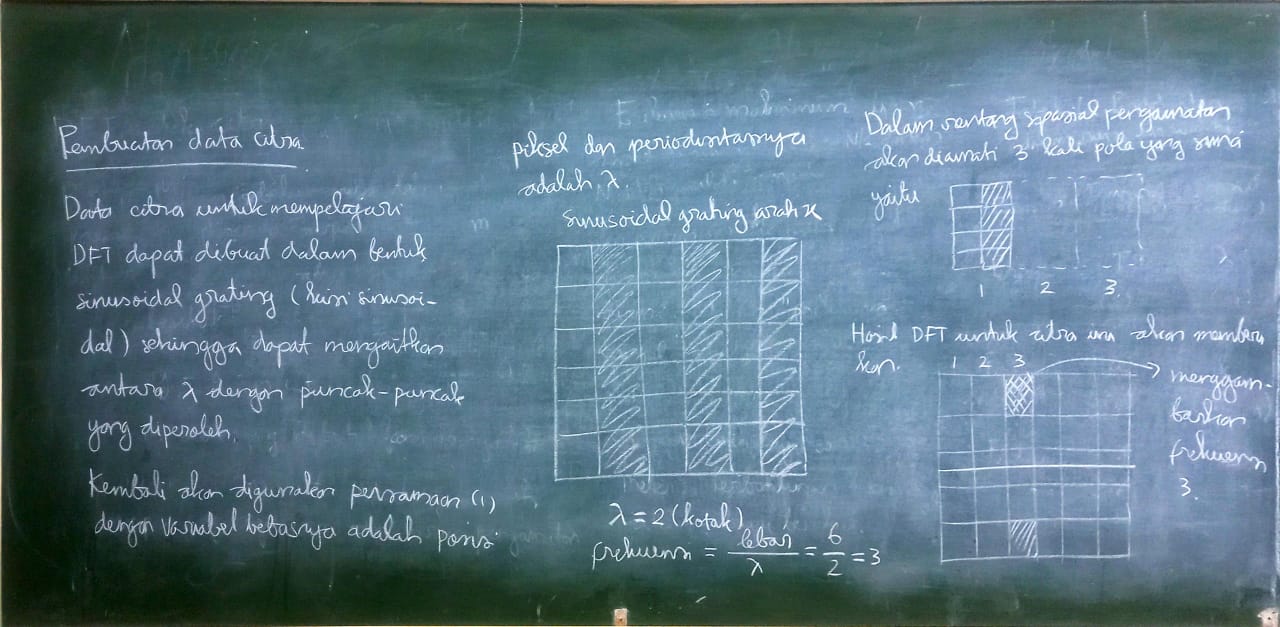 Pembuatan data citra
Data citra untuk mempelajari
DFT dapat dibuat dalam bentuk
sinusoidal grating (kisi sinusoi-
dal) sehingga dapat mengaitkan
antara λ dengan puncak-puncak
yang diperoleh.
Kembali akan digunakan persamaan (1)
dengan variabel bebasnya adalah posisi
piksel dan periodisitasnya
adalah λ.
sinusoidal grating arah x
λ = 2 (kotak)
frekuensi = lebar/λ = 6/2 = 3
Dalam rentang spasial pengamatan
akan diamati 3 kali pola yang sama
yaitu
1 2 3.
Hasil DFT untuk citra ini akan memberi
kan.
1 2 3
menggam-
barkan
frekuensi
3.